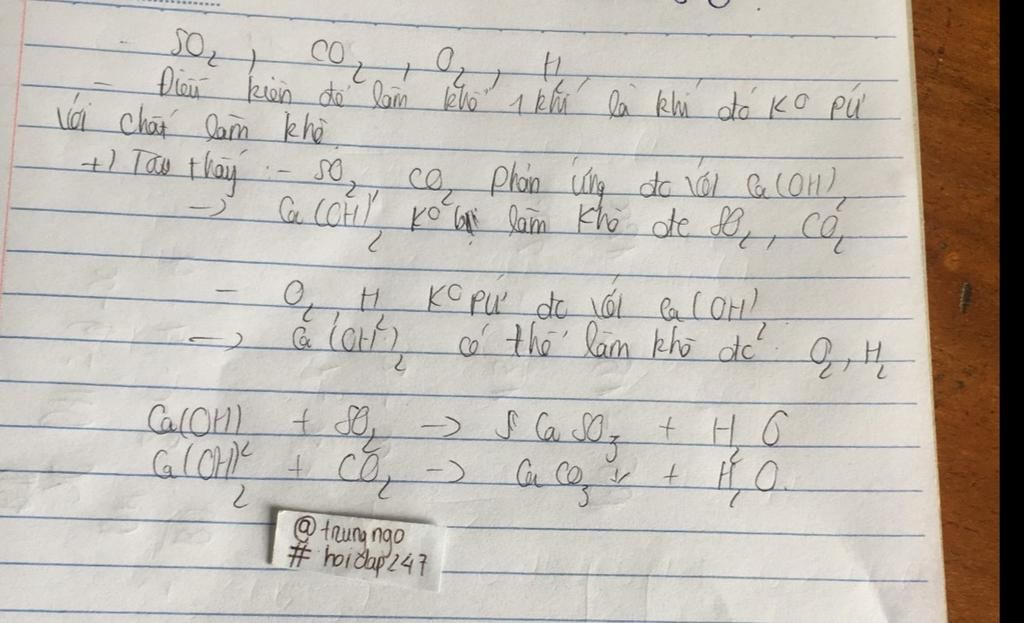 - SO₂, CO₂, O₂, H₂
- Điều kiện để làm khô 1 khí là khí đó ko pứ
với chất làm khô.
+) Tao thấy: - SO₂, CO₂ phản ứng đc với Ca(OH)₂
-> Ca(OH)₂ ko làm khô đc SO₂, CO₂
- O₂, H₂ ko pứ đc với Ca(OH)₂
-> Ca(OH)₂ có thể làm khô đc O₂, H₂
Ca(OH)₂ + SO₂ -> CaSO₃ + H₂O
Ca(OH)₂ + CO₂ -> CaCO₃↓ + H₂O.
@trungngo
# hoidap247